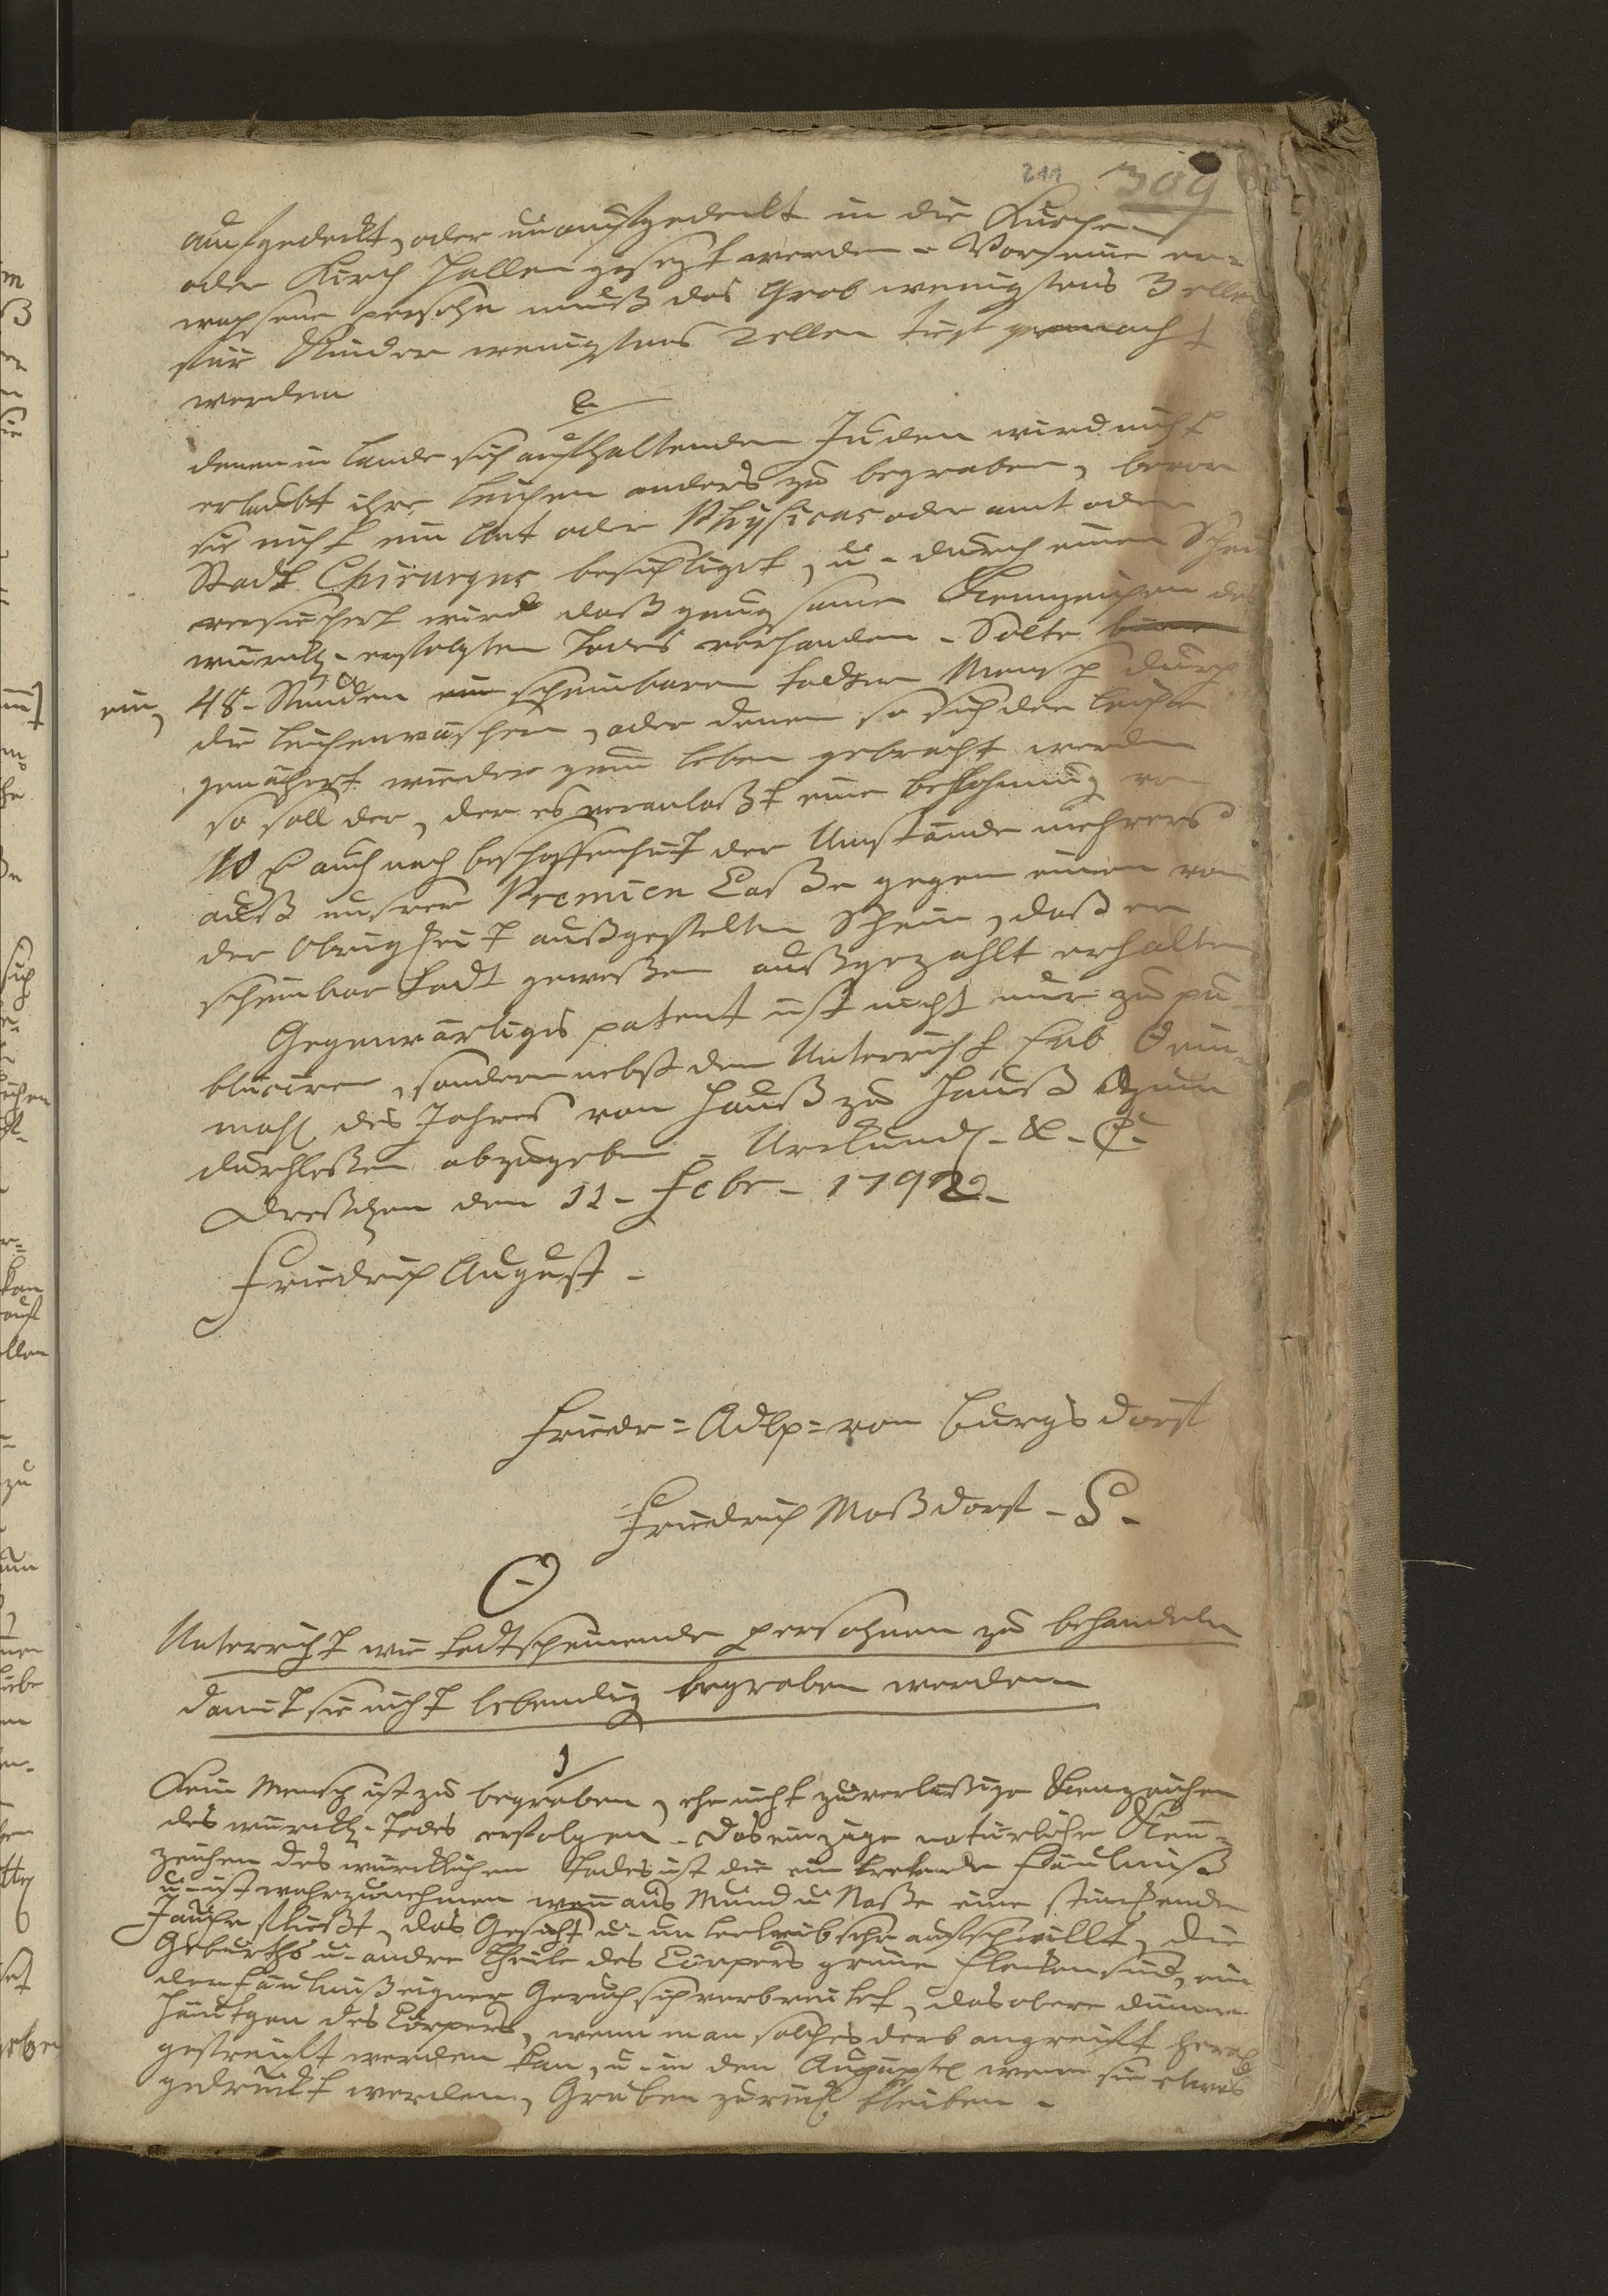 211 309
aufgedeckt, oder unaufgedeckt in die Kirchen
oder Kirch Hallen gesezt werden - Vor eine er=
wachsene persohn muß das Grab wenigstens 3 ellen
für Kinder wenigstens 2 ellen tief gemacht
werden
e
denen im Lande sich aufhaltenden Juden wird nicht
erlaubt ihre Leichen anders zu begraben, bevor
sie nicht ein Amt oder Physicus oder amt oder
Stadt Chirurgus besichtiget, u - durch einen Schein
versichert wird daß gnugsame Kennzeichen des
würckl - erfolgten Todes vorhanden - Solte
ein, 48 - Stunden ein scheinbarer todter Mensch durch
die Leichenwäscherin, oder denen so sich der Leiche
genähert wieder zum Leben gebracht werden
so soll der, der es veranlaßt eine Belohnung von
10 auch nach beschaffenheit der Umstände mehrers
auß unsrer Premien Caße gegen einen von
der Obrigkeit außgestelten Schein, daß er
scheinbar todt geweßen außgezahlt erhalten
Gegenwärtiges patent ist nicht nur zu pu=
bliciren, sondern nebst dem Unterricht sub ʘ ein=
mahl des Jahres von Hauß zu Hauß zum
durchleßen abzugeben - Urkundl - &. C.
Dreßden den 11 - Febr - 1792 -
Friedrich August -
Friedr = Adlp = von Burgsdorf
Friedrich Moßdorf - S -
ʘ
Unterricht wie todtscheinende persohnen zu behandeln
damit sie nicht lebendig begraben werden
1
Kein Mensch ist zu begraben, ehe nicht zuverläßige Kenzeichen
des würckl - Todes erfolgen - Das einzige natürliche Kenn=
zeichen des würcklichen Todes ist die ein tretende Fäulniß
u - ist wahrzunehmen wenn aus Mund u Naße eine stinckende
Jauche fließt, das Gesicht u - unterleib sehr aufschwillt, die
Geburths u - andre Theile des Cörpers grüne Flecken sind, ein
der Fäulniß eigner Geruch sich verbreitet, das obere dünne
Häutgen des Cörpers, wenn man solches derb angreift herab
gestreift werden kan, u - in den Augäpfel wenn sie etwas
gedrückt werden, Gruben zurück bleiben -